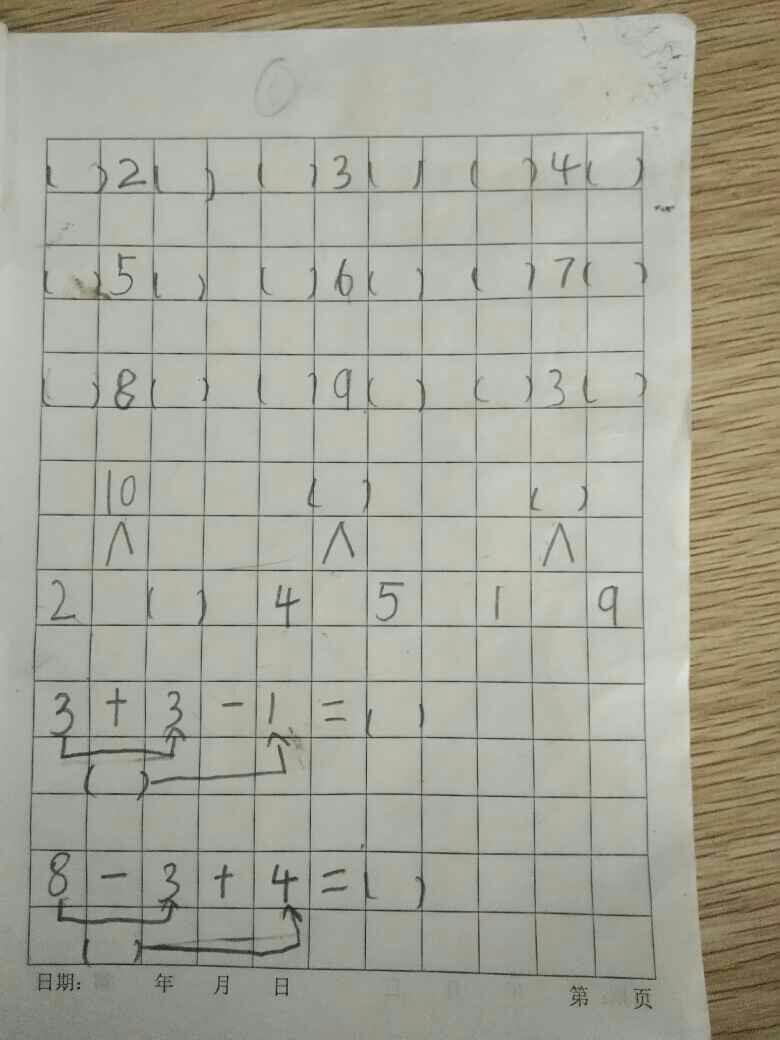 0
( ) 2 ( ) ( ) 3 ( ) ( ) 4 ( )
( ) 5 ( ) ( ) 6 ( ) ( ) 7 ( )
( ) 8 ( ) ( ) 9 ( ) ( ) 3 ( )
10 ( ) ( )
∧ ∧ ∧
2 ( ) 4 5 1 9
3 + 3 - 1 = ( )
( )
8 - 3 + 4 = ( )
( )
日期: 年 月 日 第 页